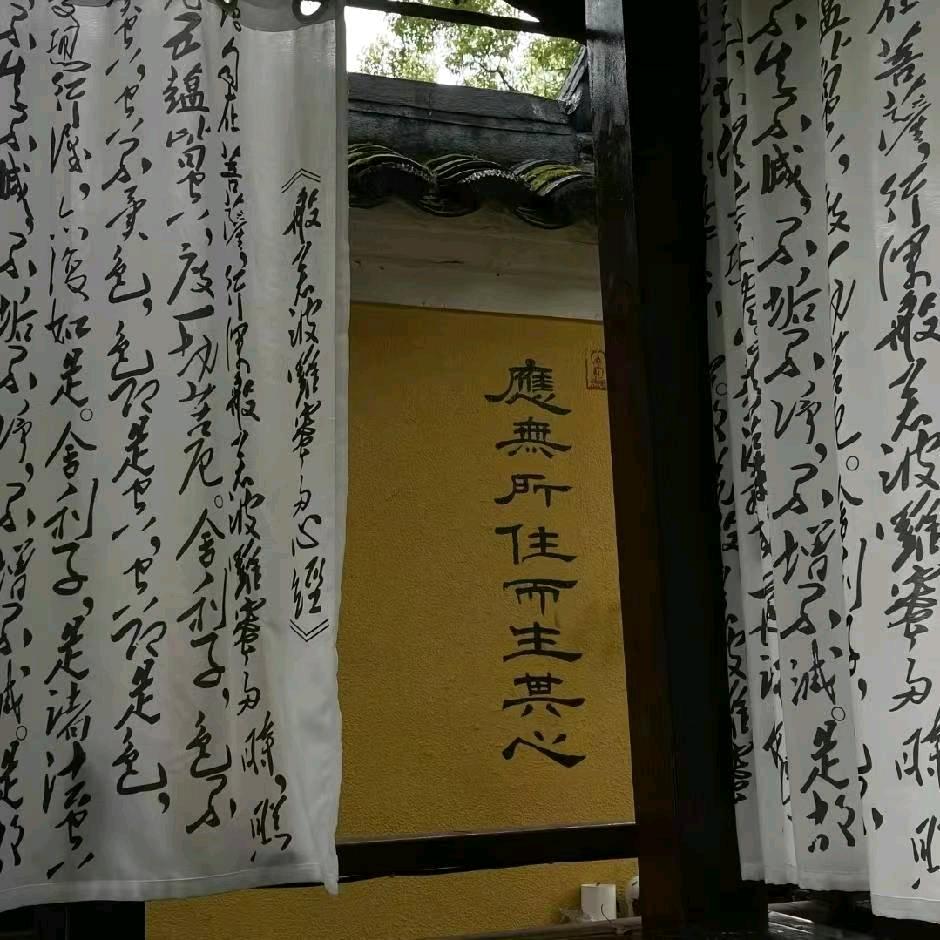 在菩薩,行深般若波羅蜜多時,照
不生不滅,不垢不淨,不增不減。是故
應無所住而生其心
《般若波羅蜜多心經》
自在菩薩,行深般若波羅蜜多時,照
五蘊皆空,度一切苦厄。舍利子,色不
空,空不異色,色即是空,空即是色,
想行識,亦復如是。舍利子,是諸法空
不生不滅,不垢不淨,不增不減。是故